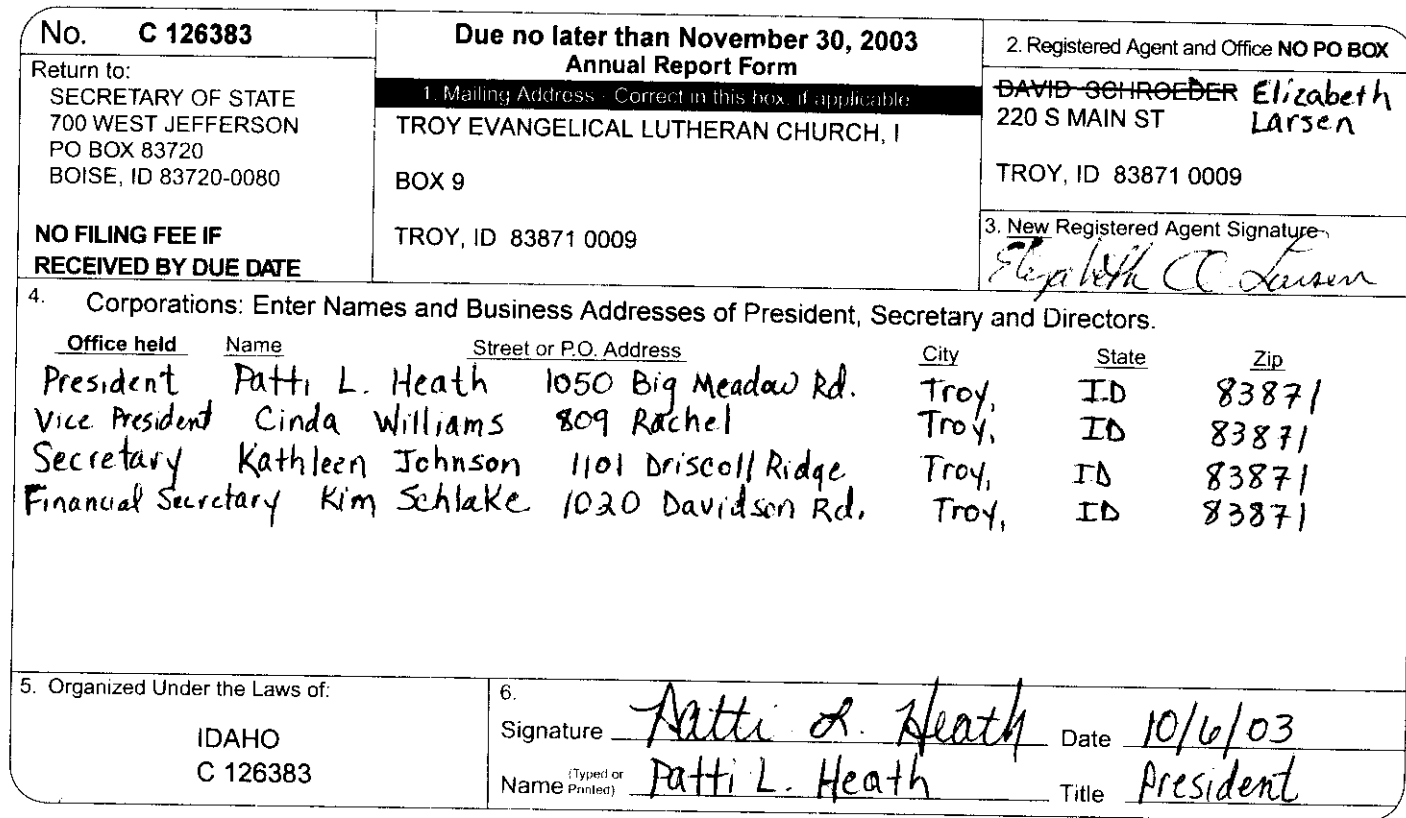 No. C 126383
Return to:
SECRETARY OF STATE
700 WEST JEFFERSON
PO BOX 83720
BOISE, ID 83720-0080
NO FILING FEE IF
RECEIVED BY DUE DATE
Due no later than November 30, 2003
Annual Report Form
1. Mailing Address - Correct in this box, if applicable
TROY EVANGELICAL LUTHERAN CHURCH, I
BOX 9
TROY, ID 83871 0009
2. Registered Agent and Office NO PO BOX
DAVID SCHROEDER Elizabeth
220 S MAIN ST Larsen
TROY, ID 83871 0009
3. New Registered Agent Signature
Elizabeth C Larsen
4. Corporations: Enter Names and Business Addresses of President, Secretary and Directors.
Office held Name Street or P.O. Address City State Zip
President Patti L. Heath 1050 Big Meadow Rd. Troy, ID 83871
Vice President Cinda Williams 809 Rachel Troy, ID 83871
Secretary Kathleen Johnson 1101 Driscoll Ridge Troy, ID 83871
Financial Secretary Kim Schlake 1020 Davidson Rd. Troy, ID 83871
5. Organized Under the Laws of:
IDAHO
C 126383
6.
Signature Patti L. Heath Date 10/6/03
Name (Typed or Printed) Patti L. Heath Title President